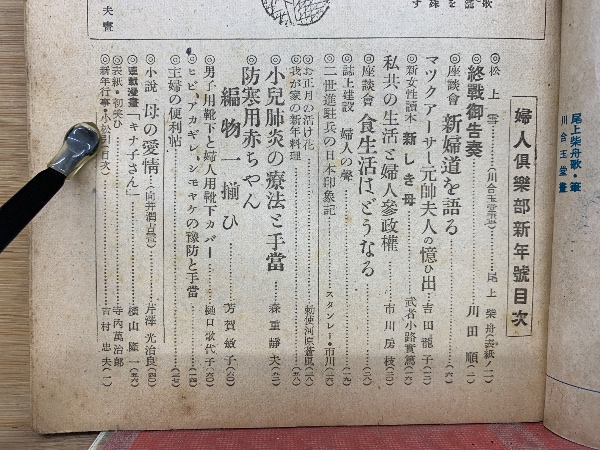 尾上柴舟歌・筆
川合玉堂畫
婦人倶樂部新年號目次
◎松上雪‥‥(川合玉堂畫)‥‥尾上柴舟(表紙ノ二)
◎終戰御告奏‥‥川田順(一)
◎座談會 新婦道を語る‥‥(六)
マツクアーサー元帥夫人の憶ひ出‥‥吉田龍子(一三)
◎新女性讀本 新しき母‥‥武者小路實篤(二三)
私共の生活と婦人參政權‥‥市川房枝(二〇)
◎座談會 食生活はどうなる‥‥(二六)
◎誌上建設 婦人の聲‥‥(二三)
◎二世進駐兵の日本印象記‥‥スタンレー・市川(一六)
◎お正月の活け花‥‥勅使河原蒼風(一八)
◎我が家の新年料理‥‥(五八)
◎小兒肺炎の療法と手當‥‥森重靜夫(五二)
防寒用赤ちやん編物一揃ひ‥‥芳賀敏子(六二)
男子用靴下と婦人用靴下カバー‥‥樋口歌代子(六〇)
◎ヒビ、アカギレ、シモヤケの豫防と手當‥‥(一四)
◎主婦の便利帖‥‥(三七)
◎小說 母の愛情‥‥(向井潤吉畫)‥‥芹澤光治良(四〇)
◎連載漫畫「キナ子さん」‥‥横山隆一(五六)
◎表紙・初笑ひ‥‥寺内萬治郎
◎新年行事・小松引(目次)‥‥吉村忠夫(一)
夫畫